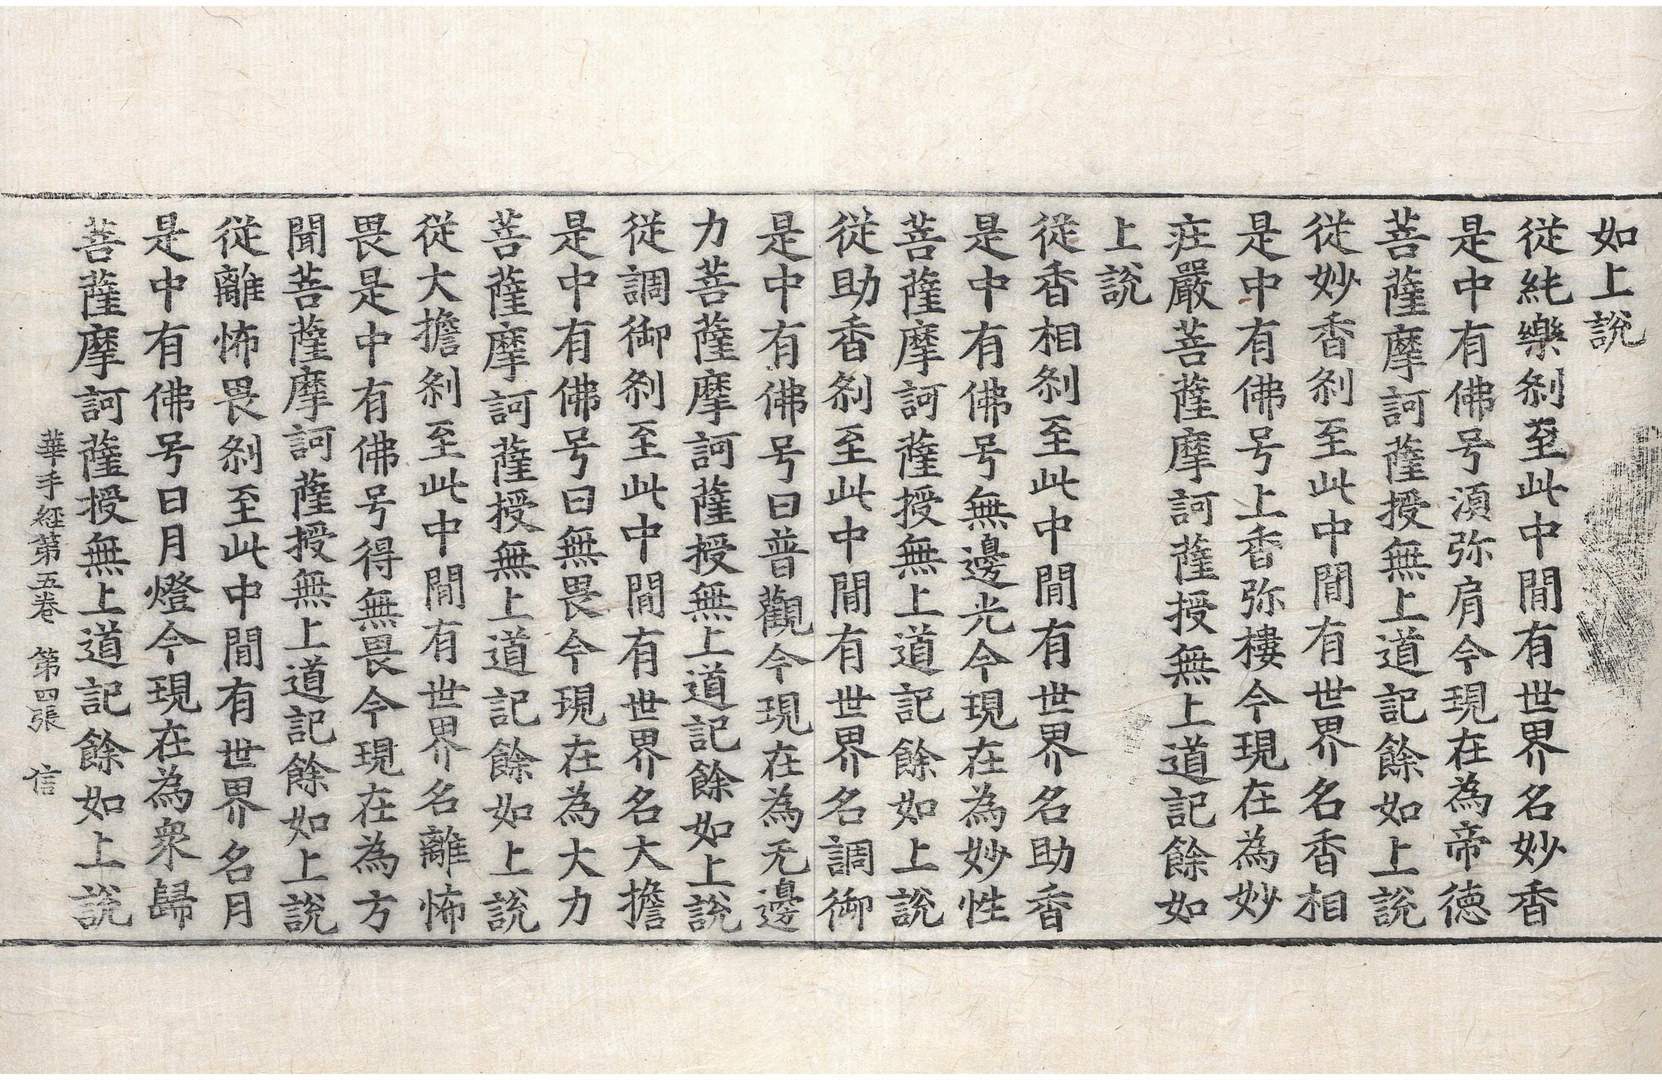 如上說
從純樂刹至此中間有世界名妙香
是中有佛号湏弥肩今現在為帝德
菩薩摩訶薩授無上道記餘如上說
從妙香刹至此中間有世界名香相
是中有佛号上香弥樓今現在為妙
疘嚴菩薩摩訶薩授無上道記餘如
上說
從香相刹至此中間有世界名助香
是中有佛号無邊光今現在為妙性
菩薩摩訶薩授無上道記餘如上說
從助香刹至此中間有世界名調御
是中有佛号曰普觀今現在為无邊
力菩薩摩訶薩授無上道記餘如上說
從調御刹至此中間有世界名大擔
是中有佛号曰無畏今現在為大力
菩薩摩訶薩授無上道記餘如上說
從大擔刹至此中間有世界名離怖
畏是中有佛号得無畏今現在為方
聞菩薩摩訶薩授無上道記餘如上說
從離怖畏刹至此中間有世界名月
是中有佛号日月燈今現在為衆歸
菩薩摩訶薩授無上道記餘如上說
華手經第五卷 第四張 信